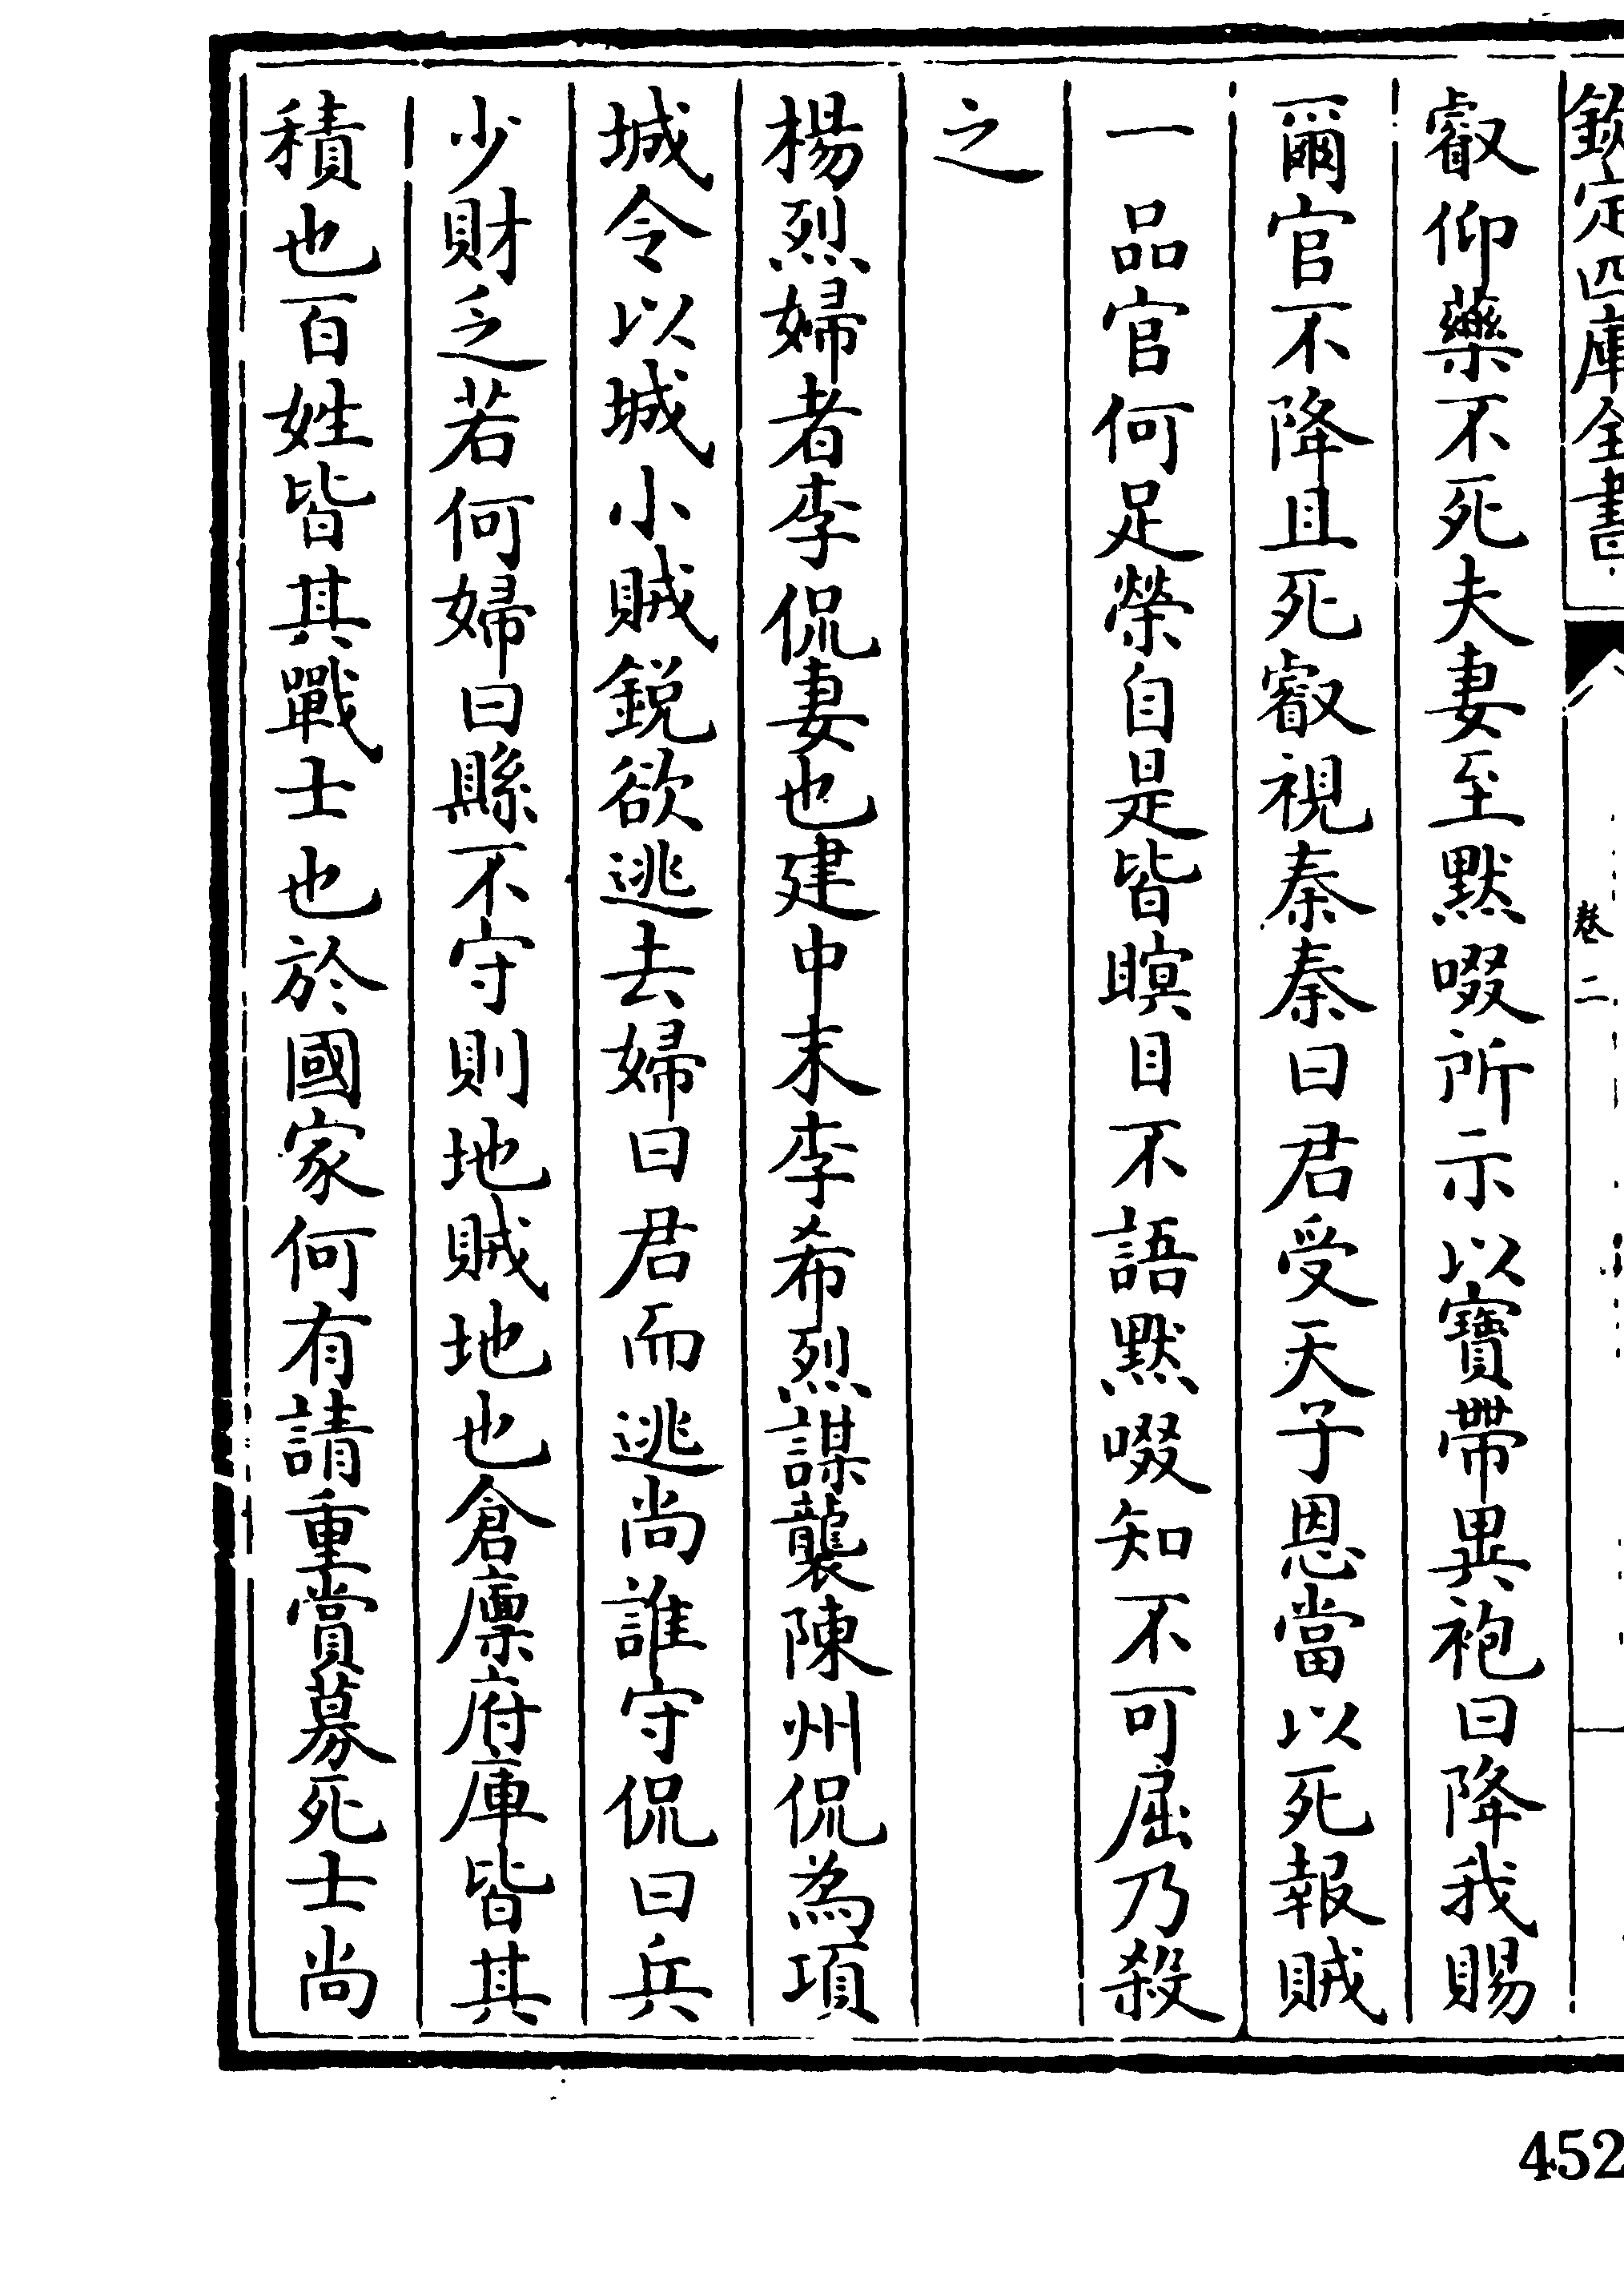 欽定四庫全書
卷二
叡仰藥不死夫妻至黙啜所示以寶帶異袍曰降我賜
爾官不降且死叡視秦秦曰君受天子恩當以死報賊
一品官何足榮自是皆瞑目不語黙啜知不可屈乃殺
之
楊烈婦者李侃妻也建中末李希烈謀襲陳州侃為項
城令以城小賊鋭欲逃去婦曰君而逃尚誰守侃曰兵
少財乏若何婦曰縣不守則地賊地也倉廪府庫皆其
積也百姓皆其戰士也於國家何有請重賞募死士尚
452